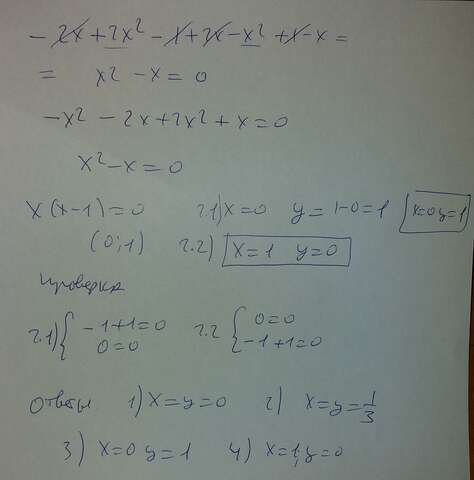 - 2x + 2x² - 1 + 2x - x² + 1 - x =
= x² - x = 0
-x² - 2x + 2x² + x = 0
x² - x = 0
x(x-1) = 0 2.1) x=0 y=1-0=1 x=0 y=1
(0;1) 2.2) x=1 y=0
Проверка
2.1) { -1+1=0 2.2 { 0=0
0=0 -1+1=0
Ответы 1) x=y=0 2) x=y=1/3
3) x=0 y=1 4) x=1, y=0